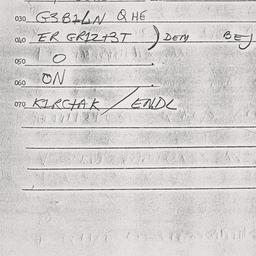 030 G3B1LN QHE
040 ER GR12+3T ) DEM BEJ
050 O
060 ON
070 K1RC+AK / ENDL